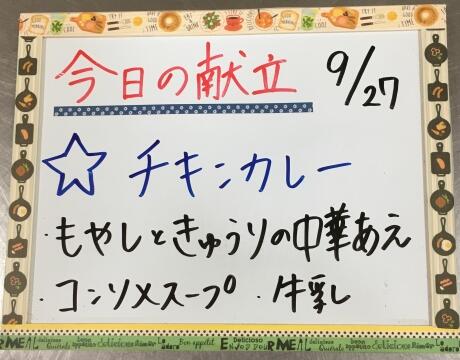 今日の献立 9/27
☆チキンカレー
・もやしときゅうりの中華あえ
・コンソメスープ ・牛乳